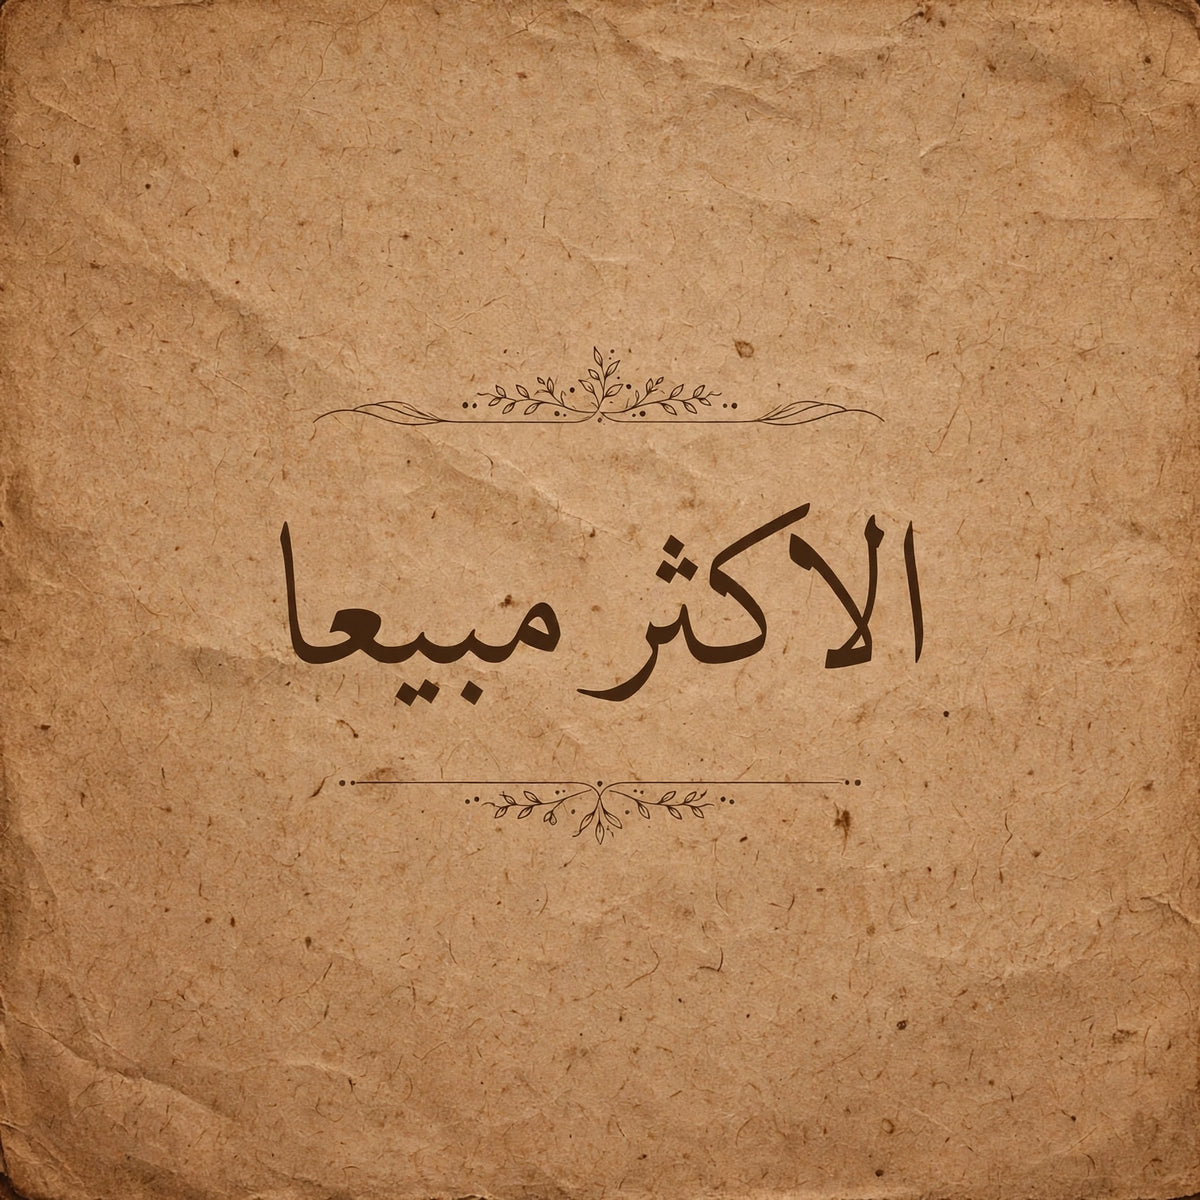 الاكثر مبيعا